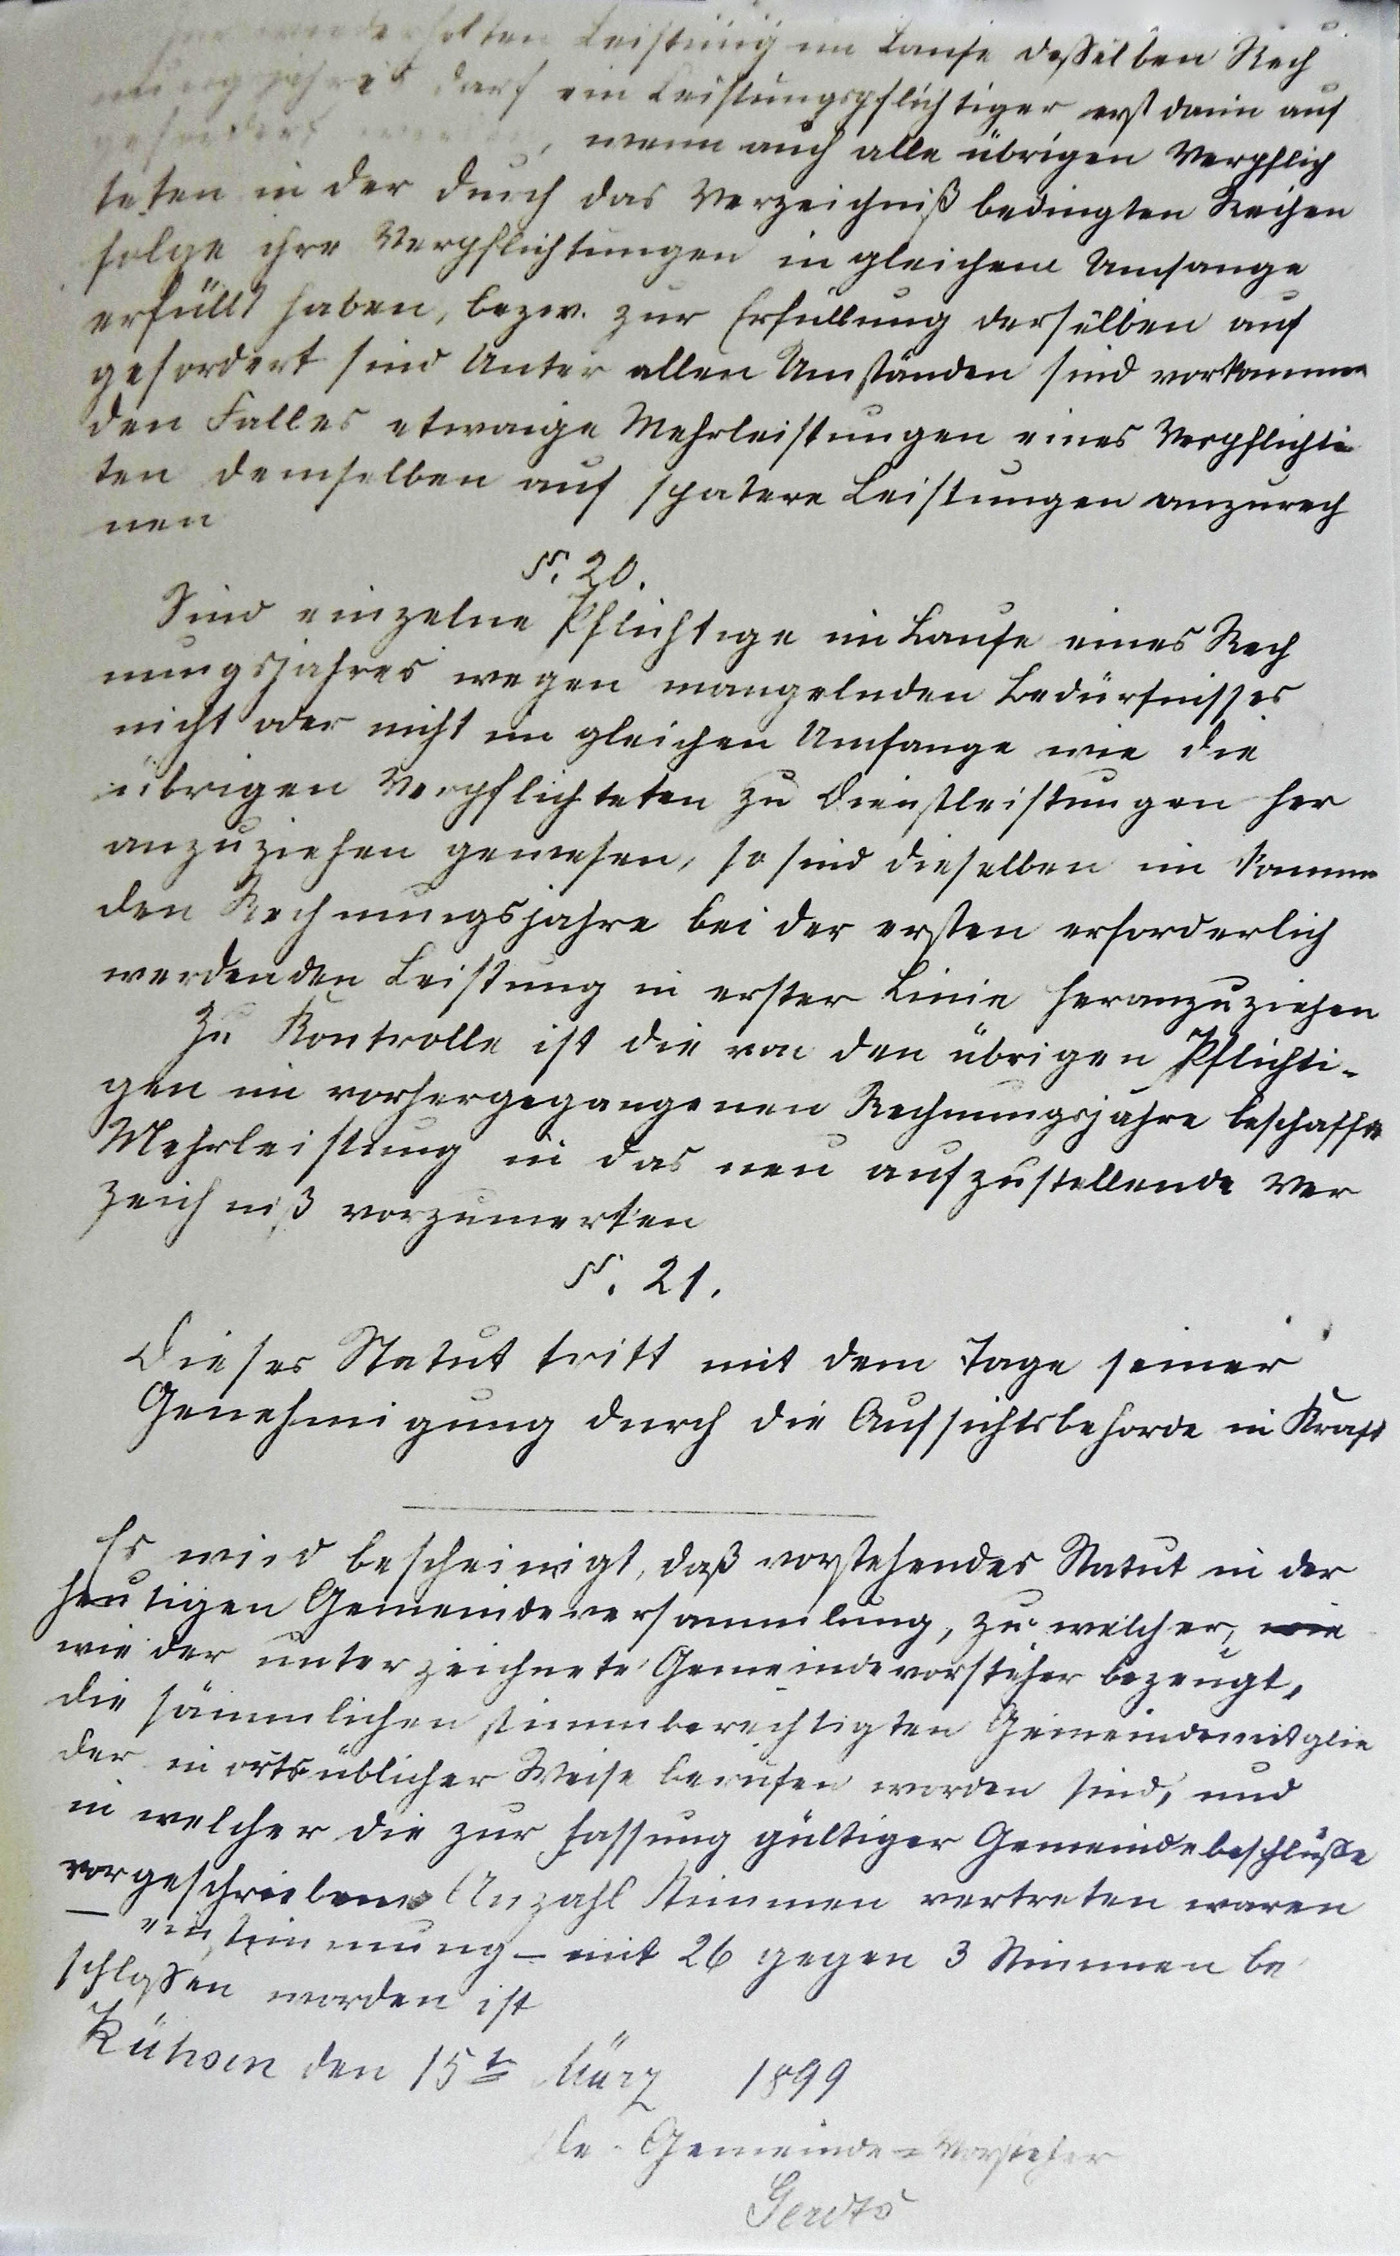 wiederholten Leistung im Laufe desselben Rech
nungsjahres darf ein Leistungspflichtiger erst dann auf
gefordert werden, wenn auch alle übrigen Verpflich
teten in der durch das Verzeichniß bedingten Reihen
folge ihre Verpflichtungen in gleichem Umfange
erfüllt haben, bezw. zur Erfüllung derselben auf
gefordert sind Unter allen Umständen sind vorkommen
den Falles etwaige Mehrleistungen eines Verpflichte
ten demselben auf spatere Leistungen anzurech
nen
§. 20.
Sind einzelne Pflichtige im Laufe eines Rech
nungsjahres wegen mangelnden Bedürfnisses
nicht oder nicht im gleichen Umfange wie die
übrigen Verpflichteten zu Dienstleistungen her
anzuziehen gewesen, so sind dieselben im komm
den Rechnungsjahre bei der ersten erforderlich
werdenden Leistung in erster Linie heranzuziehen
Zu Kontrolle ist die von den übrigen Pflichti-
gen im vorhergegangenen Rechnungsjahre beschaffte
Mehrleistung in das neu aufzustellende Ver
zeichniß vorzumerken
§. 21.
Dieses Statut tritt mit dem Tage seiner
Genehmigung durch die Aufsichtsbehorde in Kraft
Es wird bescheinigt, daß vorstehendes Statut in der
heutigen Gemeindeversammlung, zu welcher, wie
wie der unterzeichnete Gemeindevorsteher bezeugt,
die sämmlichen stimmberechtigten Gemeindemitglie
der in ortsüblicher Weise berufen worden sind, und
in welcher die zur Fassung gültiger Gemeindebeschlüße
vorgeschriebene Anzahl Stimmen vertreten waren
— einstimmung — mit 26 gegen 3 Stimmen be
schloßen worden ist
Kühsen den 15t März 1899
De. Gemeinde=Vorsteher
Gerdts